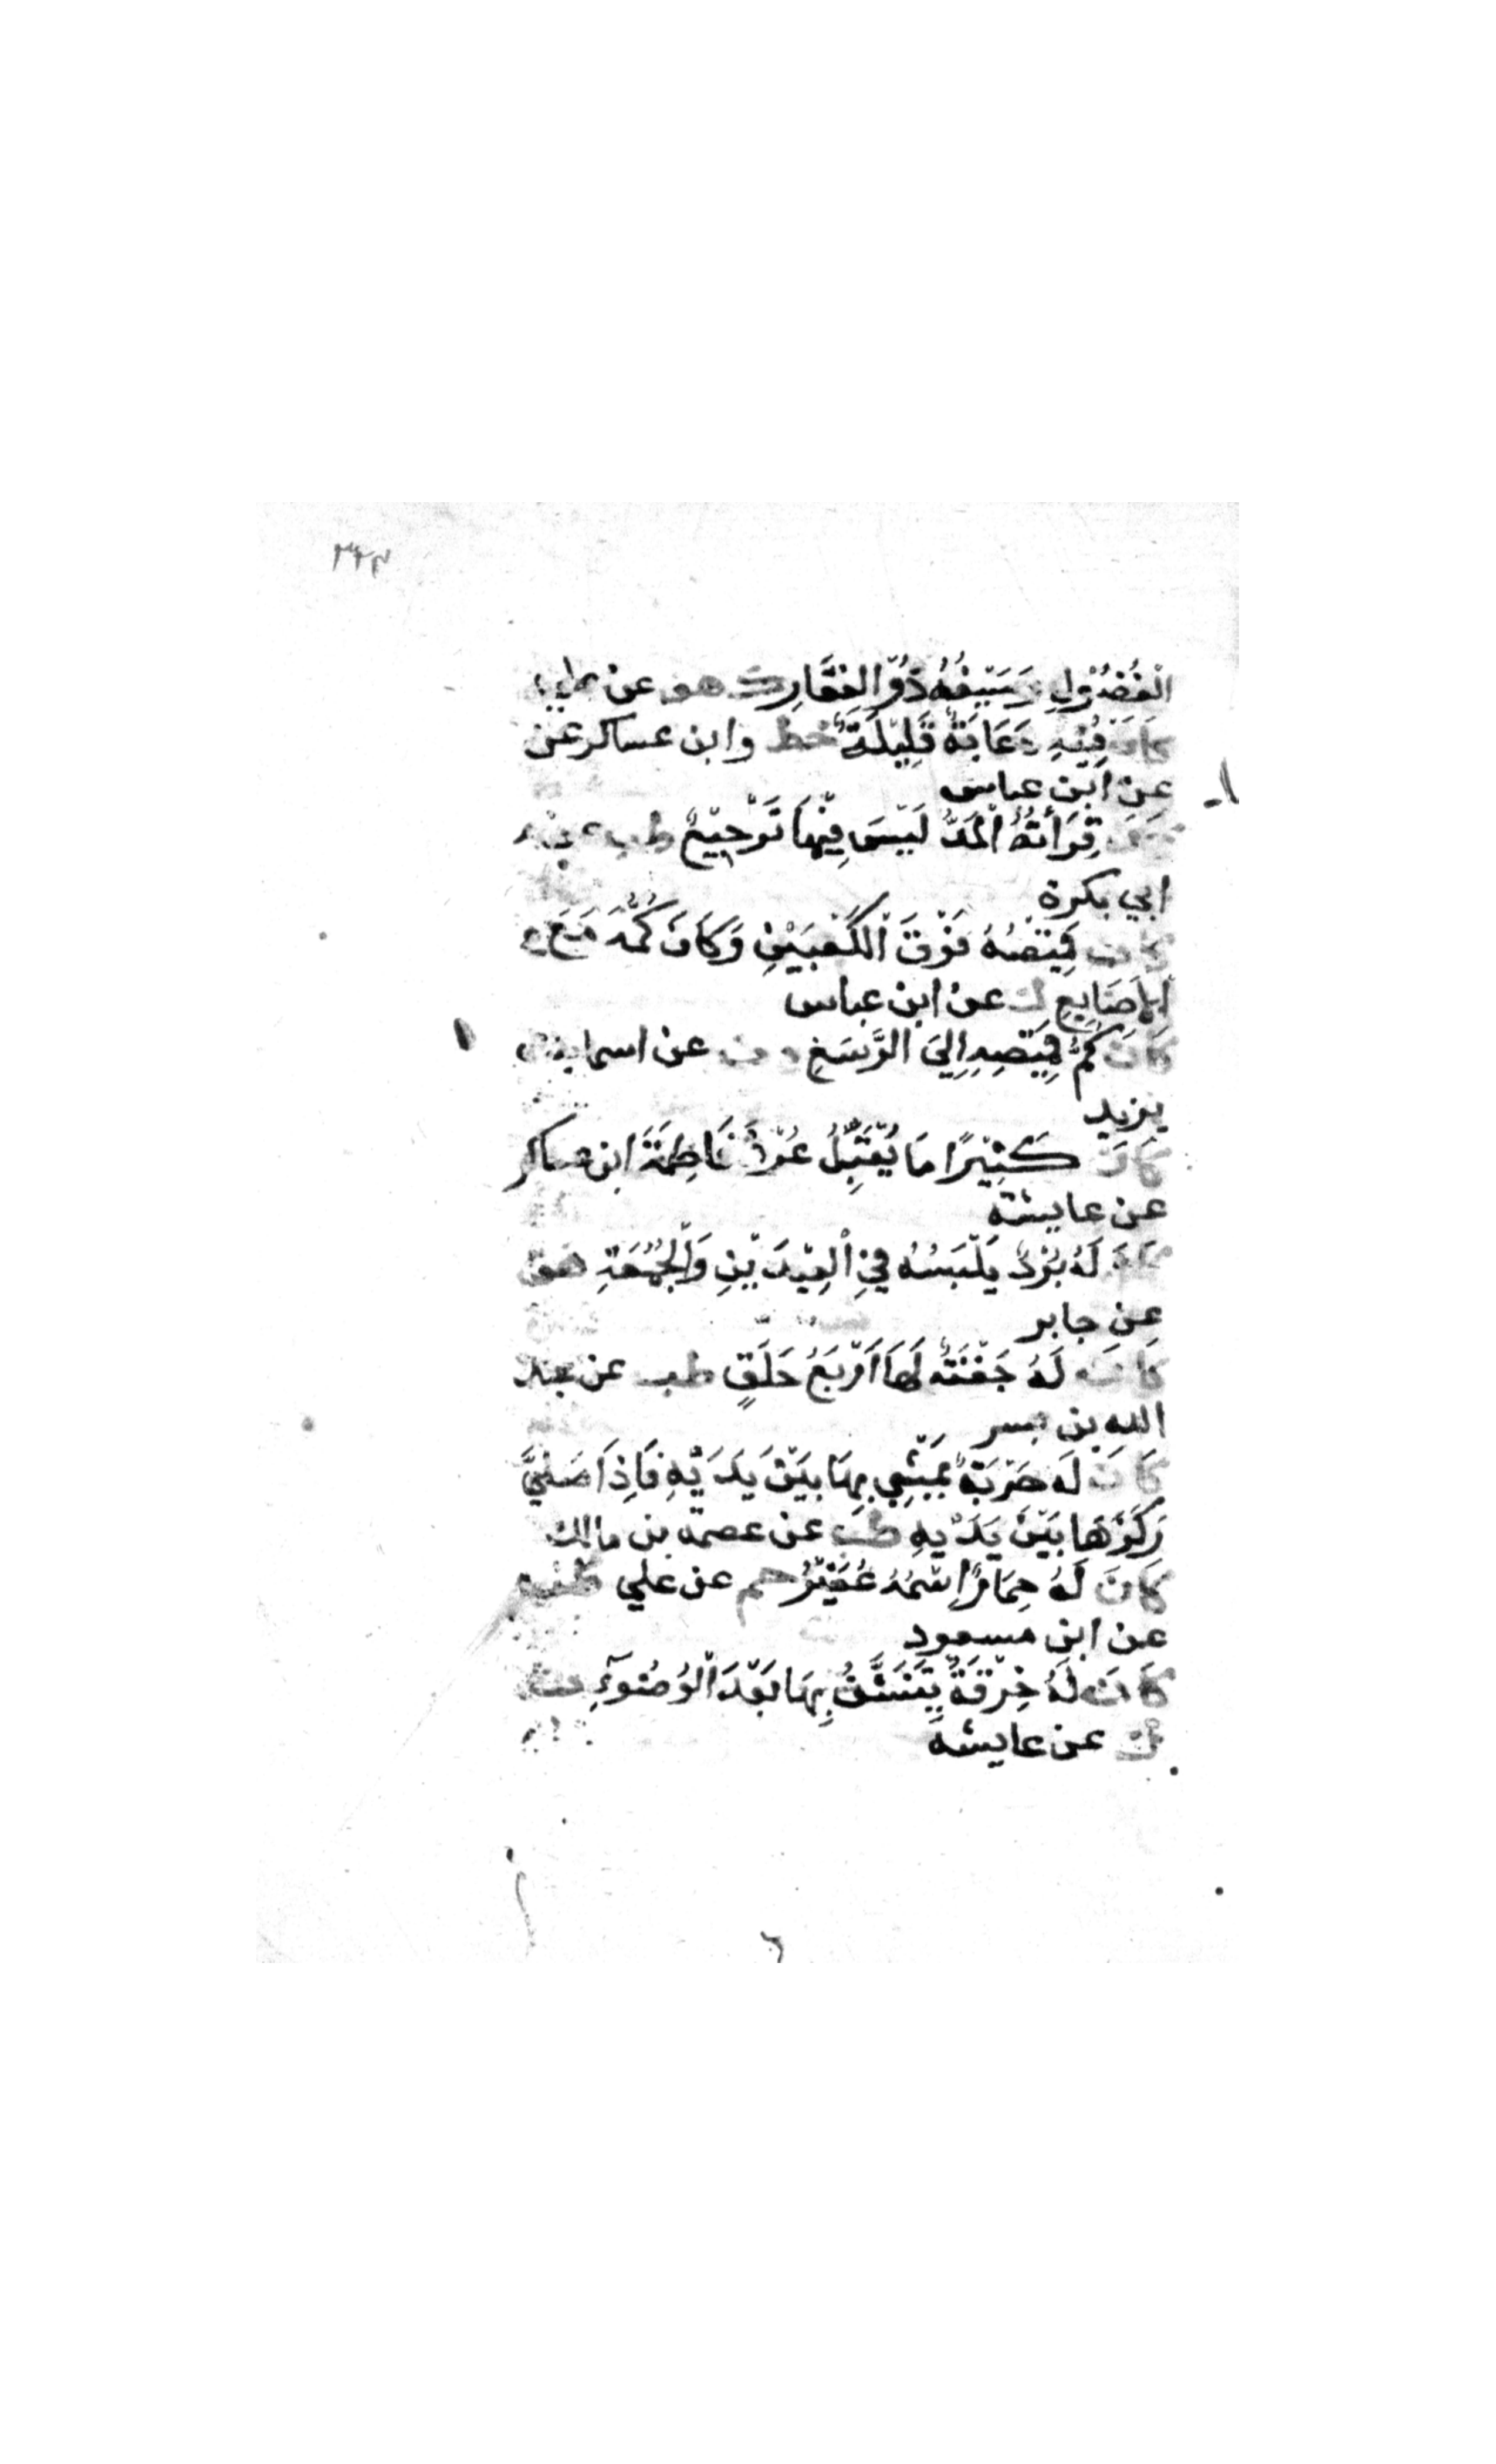 ٣٢٣
الْفُضُوْلِ وَسَيْفُهُ ذُوْ الفِقَارِ ك هق عن علي
كَانَ فِيْهِ دُعَابَةٌ قَلِيْلَةٌ خط وابن عساكر عن
عن ابن عباس
كَانَ قِرَأتُهُ الْمَدُّ لَيْسَ فِيْهَا تَرْجِيْعٌ طب عن
ابي بكرة
كان قَمِيْصُهُ فَوْقَ الْكَعْبَيْنِ وَكَانَ كُمُّهُ مَعَ
الْأَصَابِعِ ك عن ابن عباس
كَانَ كُمُّ قَمِيْصِهِ اِلَي الرُّسَغِ د ت عن اسما بنت
يزيد
كَانَ كَثِيْرًا مَا يُقَبِّلُ عُرْفَ فَاطِمَةَ ابن عساكر
عن عايشة
كَانَ لَهُ بُرْدٌ يَلْبَسُهُ فِي الْعِيْدَيْنِ وَالْجُمُعَةِ هق
عن جابر
كَانَ لَهُ جَفْنَةٌ لَهَا اَرْبَعُ حَلَقٍ طب عن عبد
الله بن بسر
كَانَ لَه حَرْبَةٌ يَمْشِي بِهَا بَيْنَ يَدَيْهِ فَاِذَا صَلَيَّ
رَكَزَهَا بَيْنَ يَدَيْهِ طب عن عصمة بن مالك
كَانَ لَهُ حِمَارٌ اِسْمُهُ عُفَيْرٌ حم عن علي طب
عن ابن مسعود
كَانَ لَهُ خِرْقَةٌ يَتَنَشَّفُ بِهَا بَعْدَ الْوُضُوْءِ ت
ك عن عايشه